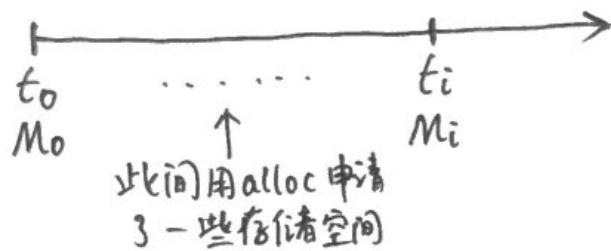 t₀ ······ tᵢ
M₀ Mᵢ
此间用alloc申请
了一些存储空间